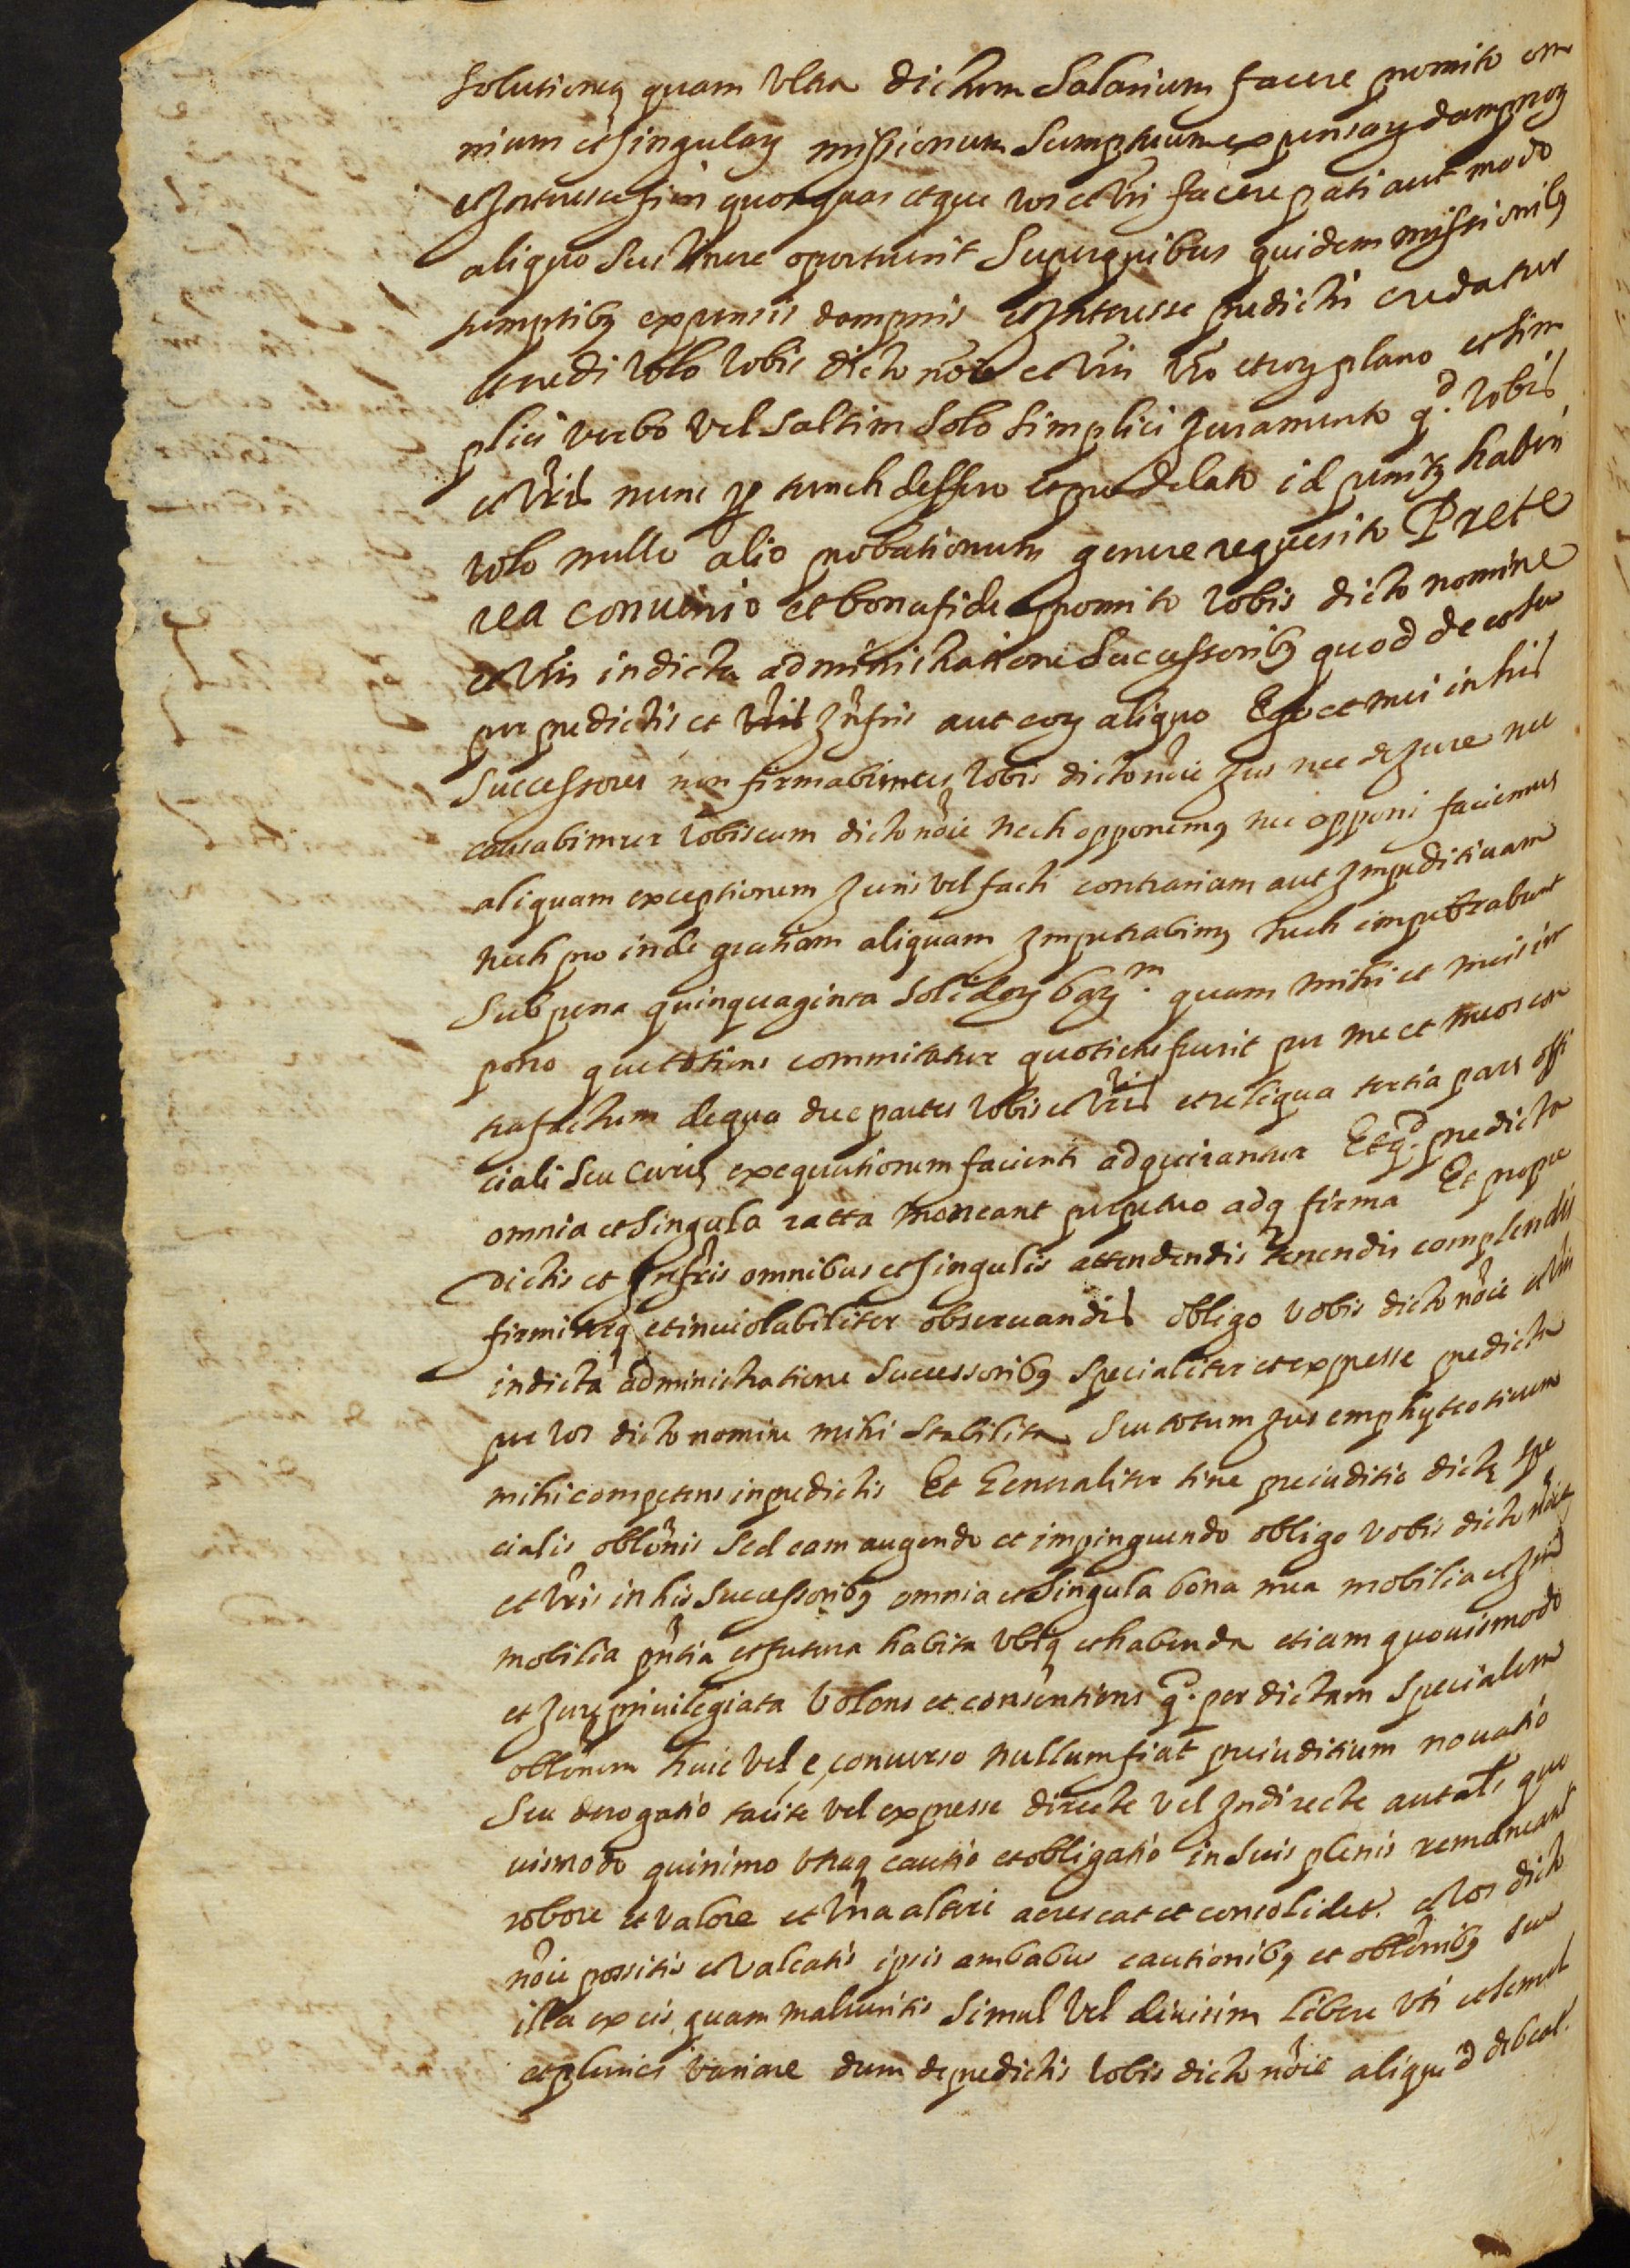 solutionẽ quam ultra dictum Salarium facere promito om
nium et singulaȝ missionum Sumptuum expensaȝ dampnoȝ
et Interesse si in quos quas et que vos et vri facere pati aut modo
aliquo Sustinere oportuerit Superquibus quidem missionibȝ
sumptibȝ expensis dampnis et Interesse predictis credatur
et credi volo vobis dicto nōie et vris vro et eoȝ plano et sim
plici verbo vel saltim Solo Simplici Juramento qd. vobis
et vris nunc ꝑ tunch deffero et pro delato id penitȝ haberi
volo nullo alio probationum genere requesito Prete
rea convenio et bona fide promito vobis dicto nomine
et vris in dicta administratione Successoribȝ quod de et su
per predictis et vris Infris aut eoȝ aliquo Ego et mei in his
Successores non firmabimus vobis dicto nōie Jus nec de Jure nec
causabimur vobiscum dicto nōie nech opponemȝ nec opponi faciemus
aliquam exceptionem Juris vel facti contrariam aut Impeditivam
nech pro inde gratiam aliquam Impetrabimȝ nech impetrabunt
Sub pena quinquaginta Solidoȝ barm. quam mihi et meis im
pono que totiens commitatur quotiens fuerit per me et meos con
trafactum de qua due partes vobis et vris et reliqua tertia pars offi
ciali Seu Curie exequutionem facienti adquirantur Et qd. predicta
omnia et Singula ratta maneant perpetuo adqȝ firma Et pro pre
dictis et Infris omnibus et Singulis attendendis tenendis complendis
firmiterqȝ et inviolabiliter observandis obligo vobis dicto nōie et vris
in dicta administratione Successoribȝ Specialiter et expresse predicta
per vos dicto nomine mihi Stabilita Seu totum Jus emphyteoticum
mihi competens in predictis Et Generaliter sine preiuditio dicte spe
cialis oblonis Sed eam augendo et impinguendo obligo vobis dicto nōie
et vris in his Successoribȝ omnia et Singula bona mea mobilia et Im
mobilia pntia et futura habita ubiqȝ et habenda etiam quovismodo
et Jure privilegiata Volens et consentiens q. per dictam Specialem
oblonem huic vel e, converso nullum fiat preiuditium novatio
Seu derogatio tacite vel expresse directe vel Indirecte aut als quo
vismodo quinimo utraqȝ cautio et obligatio in Suis plenis remaneant
robore et valore et una alteri acrescat et consolidet. et vos dicto
nōie possitis et valeatis ipsis ambabus cautionibȝ et oblonibȝ seu
illa ex eis quam malueritis Simul vel divisim libere uti et semel
et pluries variare dum de predictis vobis dicto nōie aliquid debeat.